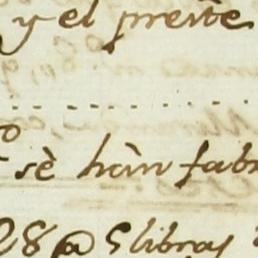 y el preste
sè hàn fabr
28 @ 5 libras